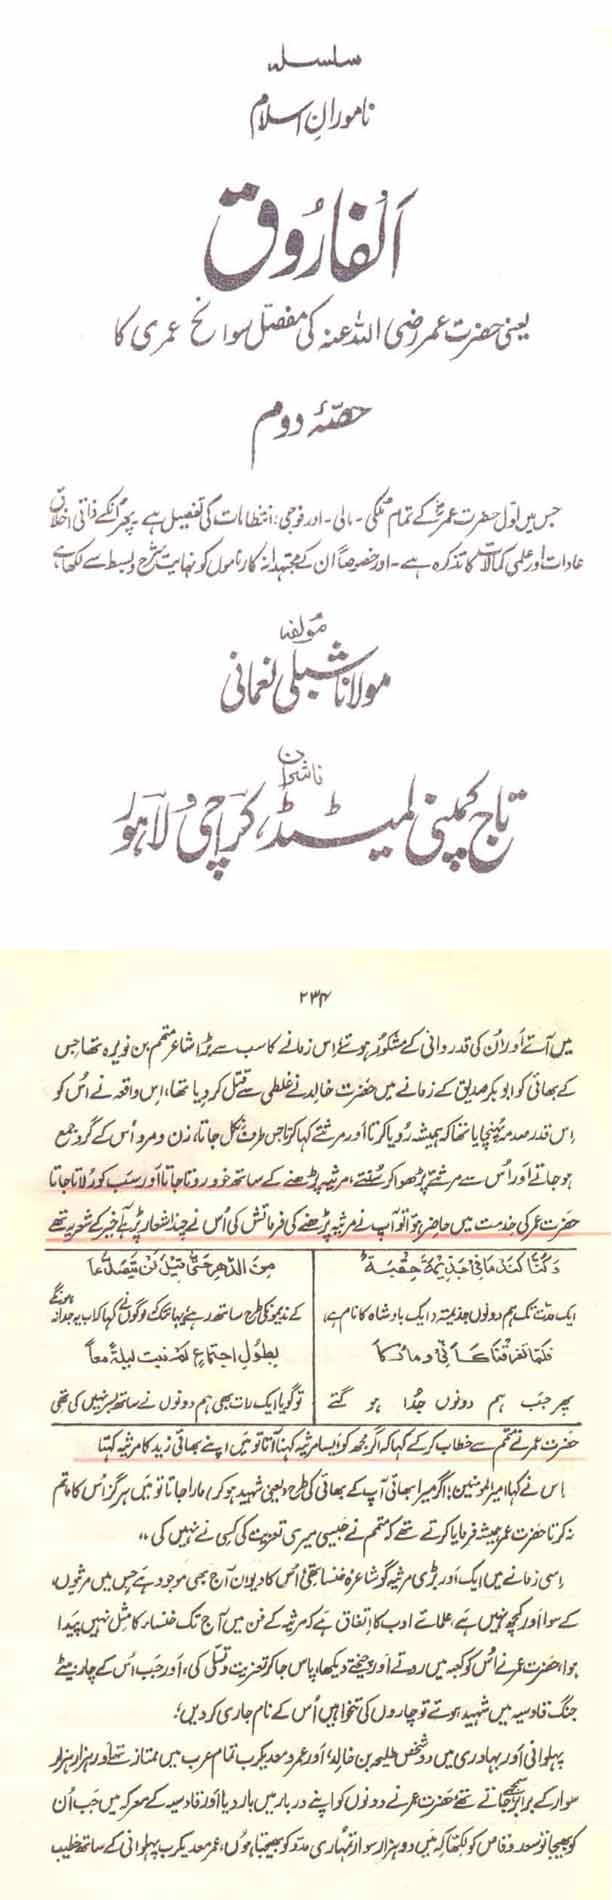 سلسلہ
ناموران اسلام
الفاروق
یعنی حضرت عمر رضی اللہ عنہ کی مفصل سوانح عمری کا
حصہ دوم
جس میں اول حضرت عمرؓ کے تمام ملکی - مالی - اور فوجی، انتظامات کی تفصیل ہے پھر انکے ذاتی اخلاق
عادات اور علمی کمالات کا تذکرہ ہے - اور خصوصاً ان کے مجتہدانہ کارناموں کو نہایت شرح و بسط سے لکھا ہے
مولفہ
مولانا شبلی نعمانی
ناشران
تاج کمپنی لمیٹڈ، کراچی و لاہور
۲۳۴
میں آتے اور ان کی قدر دانی کے مشکور ہوتے، اس زمانے کا سب سے بڑا شاعر متمم بن نویرہ تھا جس
کے بھائی کو ابوبکر صدیق کے زمانے میں حضرت خالد نے غلطی سے قتل کر دیا تھا، اس واقعہ نے اس کو
اس قدر صدمہ پہنچایا تھا کہ ہمیشہ رویا کرتا اور مرثئے کہا کرتا جس طرف نکل جاتا، زن و مرد اس کے گرد جمع
ہو جاتے اور اس سے مرثئے پڑھوا کر سنتے، مرثیہ پڑھنے کے ساتھ خود روتا جاتا اور سب کو رلاتا جاتا
حضرت عمر کی خدمت میں حاضر ہوا تو آپ نے مرثیہ پڑھنے کی فرمائش کی اس نے چند اشعار پڑھے اخیر کے شعر یہ تھے
وکنا کندمانی جذیمة حقبة من الدھر حتی قیل لن یتصدعا
ایک مدت تک ہم دونوں جذیمہ (ایک بادشاہ کا نام ہے) کے ندیموں کی طرح ساتھ رہے یہانتک کہ لوگوں نے کہا کہ اب یہ جدا نہ ہونگے
فلما تفرقنا کانی ومالکا بطول اجتماع لم نبت لیلة معا
پھر جب ہم دونوں جدا ہو گئے تو گویا ایک رات بھی ہم دونوں نے ساتھ بسر نہیں کی تھی
حضرت عمر نے متمم سے خطاب کر کے کہا کہ اگر مجھ کو ایسا مرثیہ کہنا آتا تو میں اپنے بھائی زید کا مرثیہ کہتا
اس نے کہا امیر المومنین! اگر میرا بھائی آپ کے بھائی کی طرح (یعنی شہید ہو کر) مارا جاتا تو میں ہرگز اس کا ماتم
نہ کرتا حضرت عمر ہمیشہ فرمایا کرتے تھے کہ متمم نے جیسی میری تعزیت کی کسی نے نہیں کی ۔۔
اسی زمانے میں ایک اور بڑی مرثیہ گو شاعرہ خنسا تھی، اس کا دیوان آج بھی موجود ہے جس میں مرثیوں،
کے سوا اور کچھ نہیں ہے، علمائے ادب کا اتفاق ہے کہ مرثیہ کے فن میں آج تک خنساء کا مثل نہیں پیدا
ہوا، حضرت عمر نے اس کو کعبہ میں روتے اور چیختے دیکھا، پاس جا کر تعزیت و تسلی کی، اور جب اس کے چار بیٹے
جنگ قادسیہ میں شہید ہوئے تو چاروں کی تنخواہیں اس کے نام جاری کر دیں؛
پہلوانی اور بہادری میں دو شخص طلیحہ بن خالد، اور عمرو معدیکرب تمام عرب میں ممتاز تھے اور ہزار ہزار
سوار کے برابر سمجھے جاتے تھے، حضرت عمر نے دونوں کو اپنے دربار میں بار دیا اور قادسیہ کے معرکہ میں جب ان
کو بھیجا تو سعد وقاص کو لکھا کہ میں دو ہزار سوار تمہاری مدد کو بھیجتا ہوں، عمر معدیکرب پہلوانی کے ساتھ خطیب